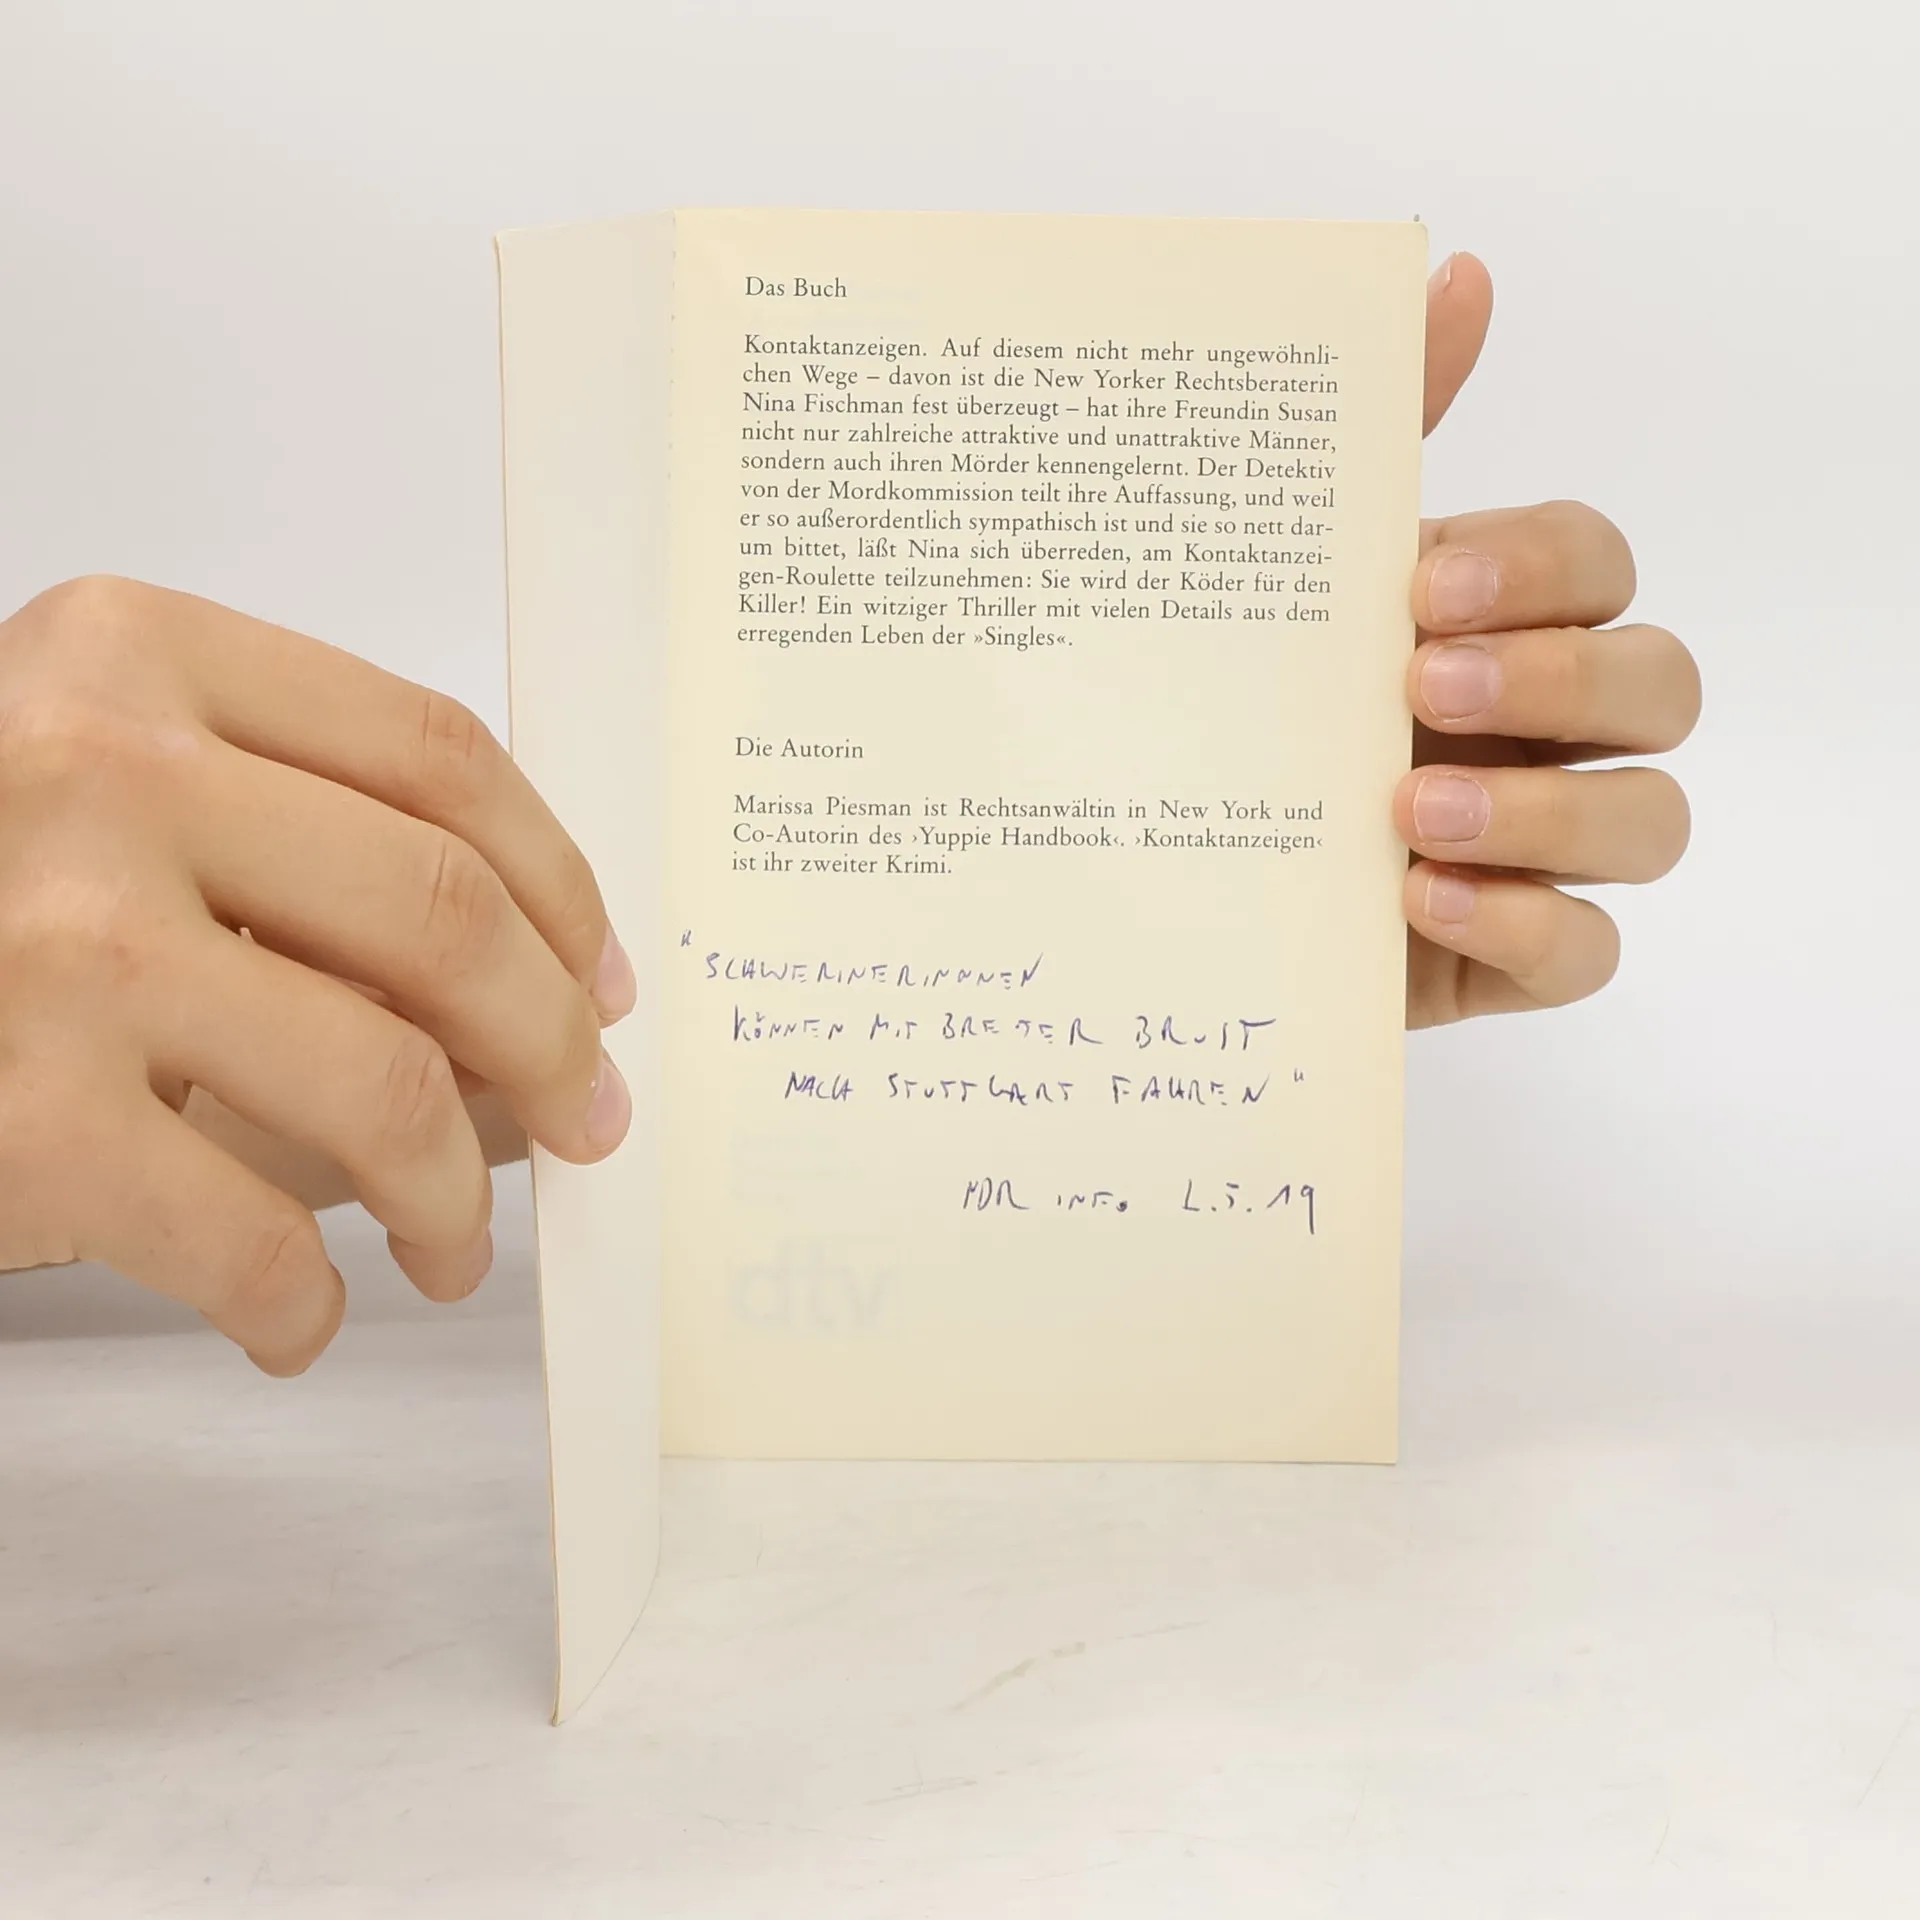 Das Buch
Kontaktanzeigen. Auf diesem nicht mehr ungewöhnli-
chen Wege – davon ist die New Yorker Rechtsberaterin
Nina Fischman fest überzeugt – hat ihre Freundin Susan
nicht nur zahlreiche attraktive und unattraktive Männer,
sondern auch ihren Mörder kennengelernt. Der Detektiv
von der Mordkommission teilt ihre Auffassung, und weil
er so außerordentlich sympathisch ist und sie so nett dar-
um bittet, läßt Nina sich überreden, am Kontaktanzei-
gen-Roulette teilzunehmen: Sie wird der Köder für den
Killer! Ein witziger Thriller mit vielen Details aus dem
erregenden Leben der »Singles«.
Die Autorin
Marissa Piesman ist Rechtsanwältin in New York und
Co-Autorin des ›Yuppie Handbook‹. ›Kontaktanzeigen‹
ist ihr zweiter Krimi.
"SCHWERINERINNEN
KÖNNEN MIT BREITER BRUST
NACH STUTTGART FAHREN"
INFO 19
dtv